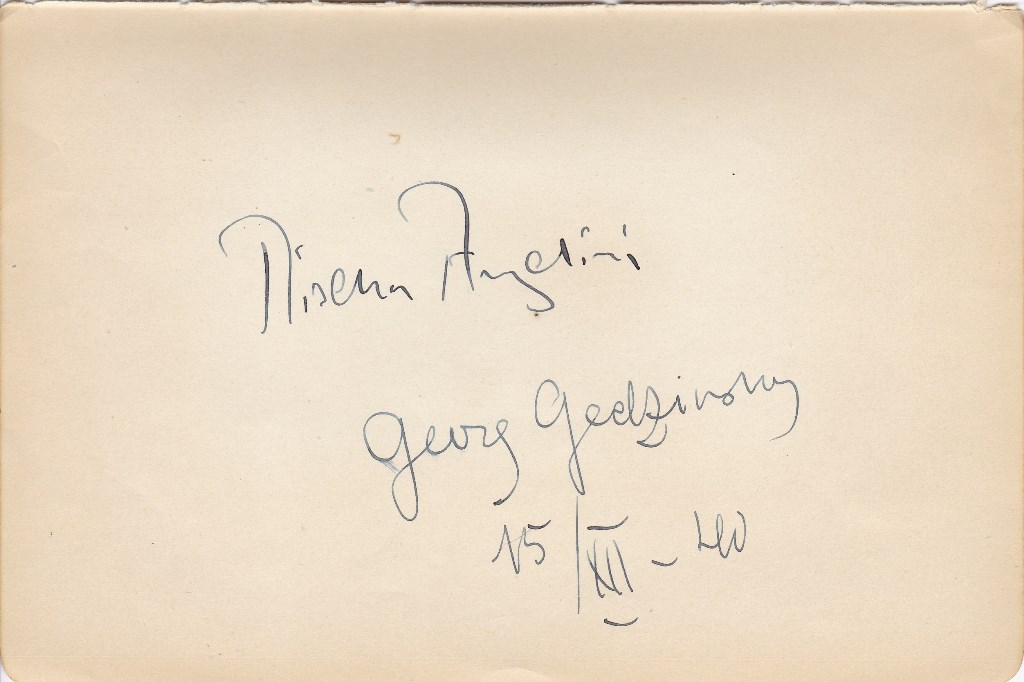 Mischa Angelini
Georg Godzinsky
15/XII - 40